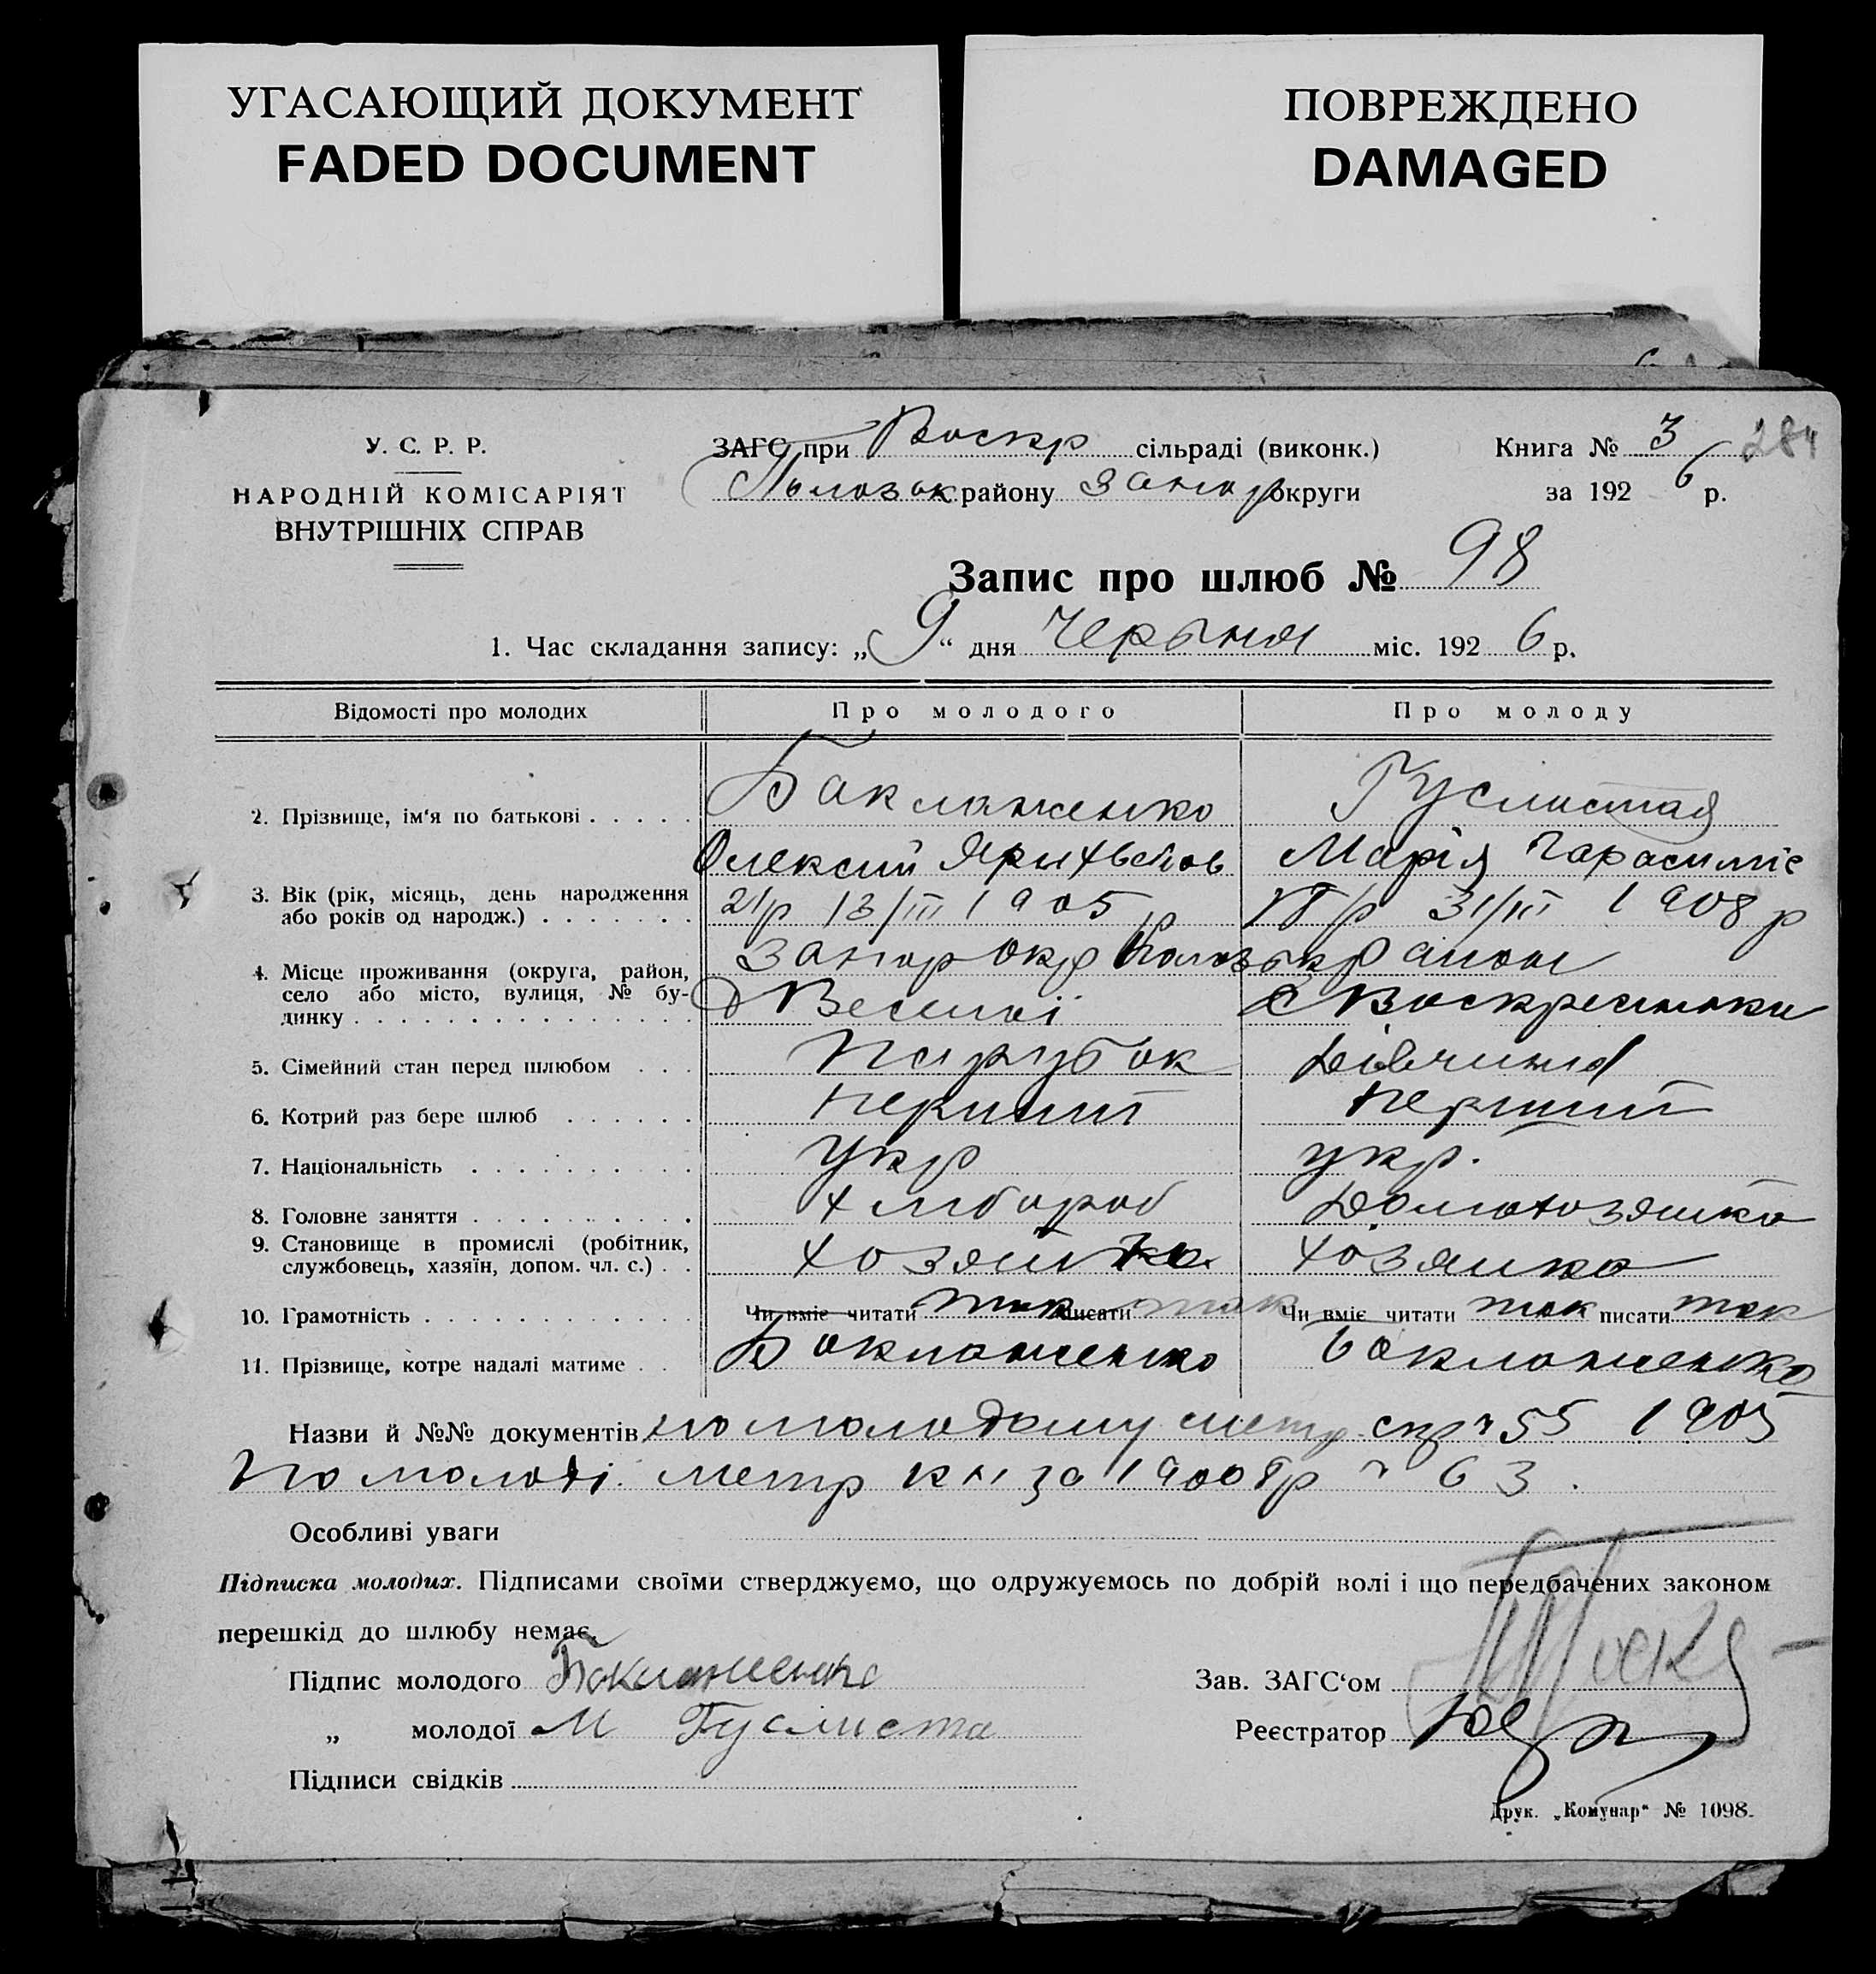 УГАСАЮЩИЙ ДОКУМЕНТ
FADED DOCUMENT
ПОВРЕЖДЕНО
DAMAGED
У. С. Р. Р.
НАРОДНІЙ КОМІСАРІЯТ
ВНУТРІШНІХ СПРАВ
ЗАГС при Воскр сільраді (виконк.)
району Запор округи
Книга № 3 284
за 1926 р.
Запис про шлюб № 98
1. Час складання запису: „9“ дня Червня міс. 1926 р.
Відомості про молодих Про молодого Про молоду
2. Прізвище, ім'я по батькові . . . . . Бакланженко Гуслистая
Олексій Марія Гарасиміс
3. Вік (рік, місяць, день народження
або років од народж.) . . . . . . . 21 р 13/III 1905 р 31/III 1908 р
4. Місце проживання (округа, район,
село або місто, вулиця, № бу-
динку . . . . . . . . . . . . . . .
Запор окр район
Веселої с Воскресенка
5. Сімейний стан перед шлюбом . . . Парубок Дівчина
6. Котрий раз бере шлюб . . . . . . перший перший
7. Національність . . . . . . . . . Укр укр.
8. Головне заняття . . . . . . . . . . Хлібороб Домохозяйка
9. Становище в промислі (робітник,
службовець, хазяїн, допом. чл. с.) . . хозяйка
10. Грамотність . . . . . . . . . . . . Чи вміє читати так писати так Чи вміє читати так писати так
11. Прізвище, котре надалі матиме . . Бакланженко Бакланженко
Назви й №№ документів по молодому метр. 55 1905
по молоді метр кн за 1908 р 63.
Особливі уваги
Підписка молодих. Підписами своїми стверджуємо, що одружуємось по добрій волі і що передбачених законом
перешкід до шлюбу немає.
Підпис молодого Бакланженко
„ молодої М Гуслиста
Підписи свідків
Зав. ЗАГС‘ом
Реєстратор
Друк. „Комунар“ № 1098.